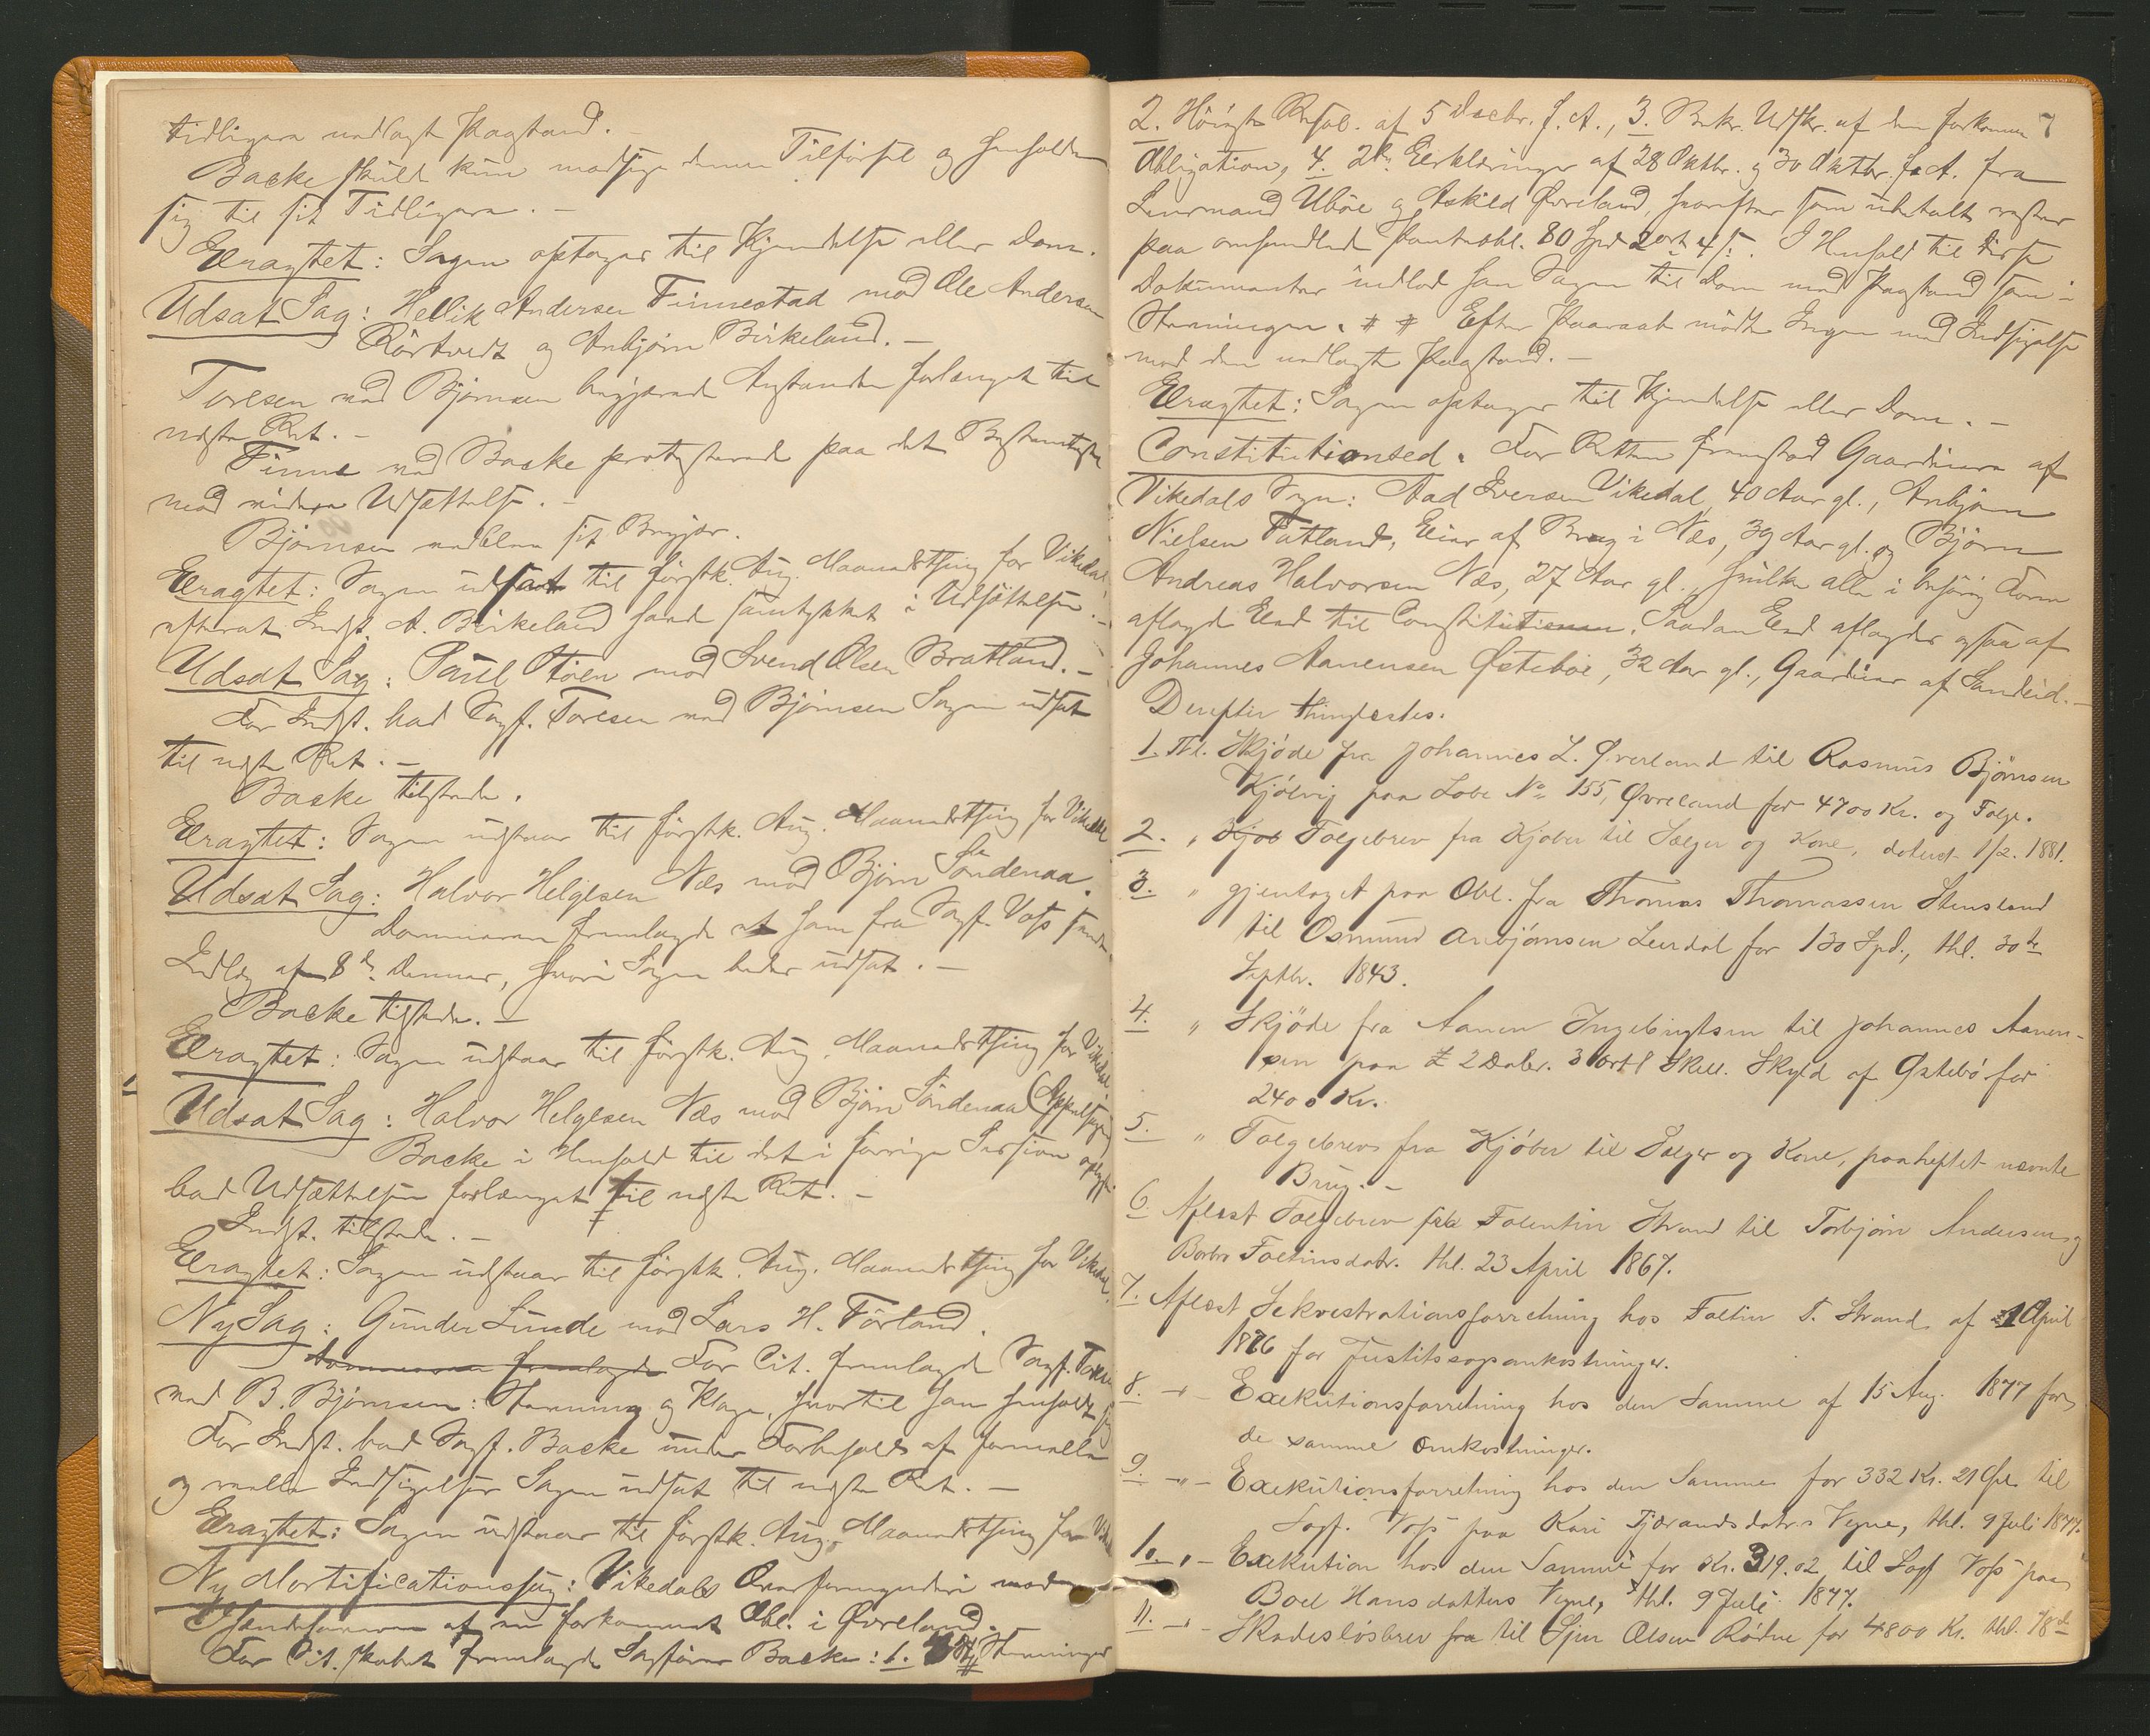 tidligere nedlagt Paastand.
Backe skulde kun modsige denne Tilførsel og henholdt
sig til sit Tidligere. —
Eragtet: Sagen optages til Kjendelse eller Dom.
Udsat Sag: Hellik Andersen Finnestad mod Ole Andersen
Rørtvedt og Anbjørn Birkeland. —
Toresen med Bjørnsen begjærede Anstanden forlænget til
næste Ret. —
Finne ved Backe protesterede paa det Bestemteste
mod videre Udsættelse. —
Bjørnsen nedblev sit Begjær.
Eragtet: Sagen udsat til førstk. Aug. Maanedsthing for Vikedal
efterat Indst. A. Birkeland havde samtykket i Udsættelsen. —
Udsat Sag: Paul Støen mod Svend Olsen Bratland. —
For Indst. bad Sagf. Toresen ved Bjørnsen Sagen udsat
til næste Ret. —
Backe tilstede.
Eragtet: Sagen udstaar til førstk. Aug. Maanedsthing for Vikedal
Udsat Sag: Halvor Helgesen Næs mod Bjørn Søndenaa.
Dommeren fremlagde et ham fra Sagf. Voss sendt
Indlæg af 8de dennes, hvori Sagen bedes udsat. —
Backe tilstede. —
Eragtet: Sagen udstaar til førstk. Aug. Maanedsthing for Vikedal.
Udsat Sag: Halvor Helgesen Næs mod Bjørn Søndenaa (Appelsag)
Backe i Henhold til det i forrige Session oplyste
bad Udsættelsen forlænget til næste Ret. —
Indst. tilstede. —
Eragtet: Sagen udstaar til førstk. Aug. Maanedsthing for Vikedal.
Ny Sag: Gunder Lunde mod Lars H. Førland.
Dommeren fremlagde For Cit. fremlagde Sagf. Toresen
ved B. Bjørnsen: Stevning og Klage, hvortil han henholdt sig
For Indst. bad Sagf. Backe under Forbehold af formelle
og reelle Indsigelser Sagen udsat til næste Ret. —
Eragtet: Sagen udstaar til førstk. Aug. Maanedsthing for Vikedal
Ny Mortificationssag: Vikedals Overformynderi mod
Ihændehaveren af en forkommet Obl. i Øvreland.
For Cit. fremlagde Sagfører Backe: 1. Stevninger
7
2. Høieste Resol. af 5 Decbr. f. A., 3. Bekr. Udskr. af den forkomne
Obligation, 4. 2de Erklæringer af 28 Oktbr. og 30 Oktbr. f. A. fra
Lensmand Ubøe og Askild Øvreland, hvorefter som ubetalt rester
paa omhandlede Panteobl. 80 Spd 2 ort 4 s. I Henhold til disse
Dokumenter indlod han Sagen til Dom med Paastand som i
Stevningen. # # Efter Paaraab mødte Ingen med Indsigelse
mod den nedlagte Paastand. —
Eragtet: Sagen optages til Kjendelse eller Dom. —
Constitutionsed. For Retten fremstod Gaardeiere af
Vikedals Sogn: Aad Iversen Vikedal, 40 Aar gl., Anbjørn
Nielsen Tatland, Eier af Brug i Næs, 39 Aar gl. og Bjørn
Andreas Halvorsen Næs, 27 Aar gl., hvilke alle i behørig Form
aflagde Eed til Constitutionen. Saadan Eed aflagdes ogsaa af
Johannes Aanensen Østebøe, 32 Aar gl., Gaardeier af Sandeid. —
Derefter thinglæstes.
1. Tl. Skjøde fra Johannes L. Øvreland til Rasmus Bjørnsen
Kjølvig paa Løbe No 155, Øvreland for 4700 Kr. og Folge.
2. " Kjøb Folgebrev fra Kjøber til Sælger og Kone, dateret 1/2. 1881.
3. " gjentaget paa Obl. fra Thomas Thomassen Stensland
til Osmund Anbjørnsen Leirdal for 130 Spd., thl. 30te
Septbr. 1843.
4. " Skjøde fra Aanen Ingebrigtsen til Johannes Aanen-
sen paa 2 Daler. 3 Ort 1 Skill. Skyld af Østebø for
2400 Kr.
5. " Folgebrev fra Kjøber til Sælger og Kone, paaheftet nævnte
Brug. —
6. Aflæst Folgebrev fra Folentin Strand til Torbjørn Andersen og
Borbro Foltinsdatr. thl. 23 April 1867.
7. Aflæst Sekvestrationsforretning hos Foltin T. Strand af 1 April
1876 for Justitssagsomkostninger.
8. -"- Exekutionsforretning hos den Samme af 15 Aug. 1877 for
de samme Omkostninger.
9. -"- Exekutionsforretning hos den Samme for 332 Kr. 21 Øre til
Sagf. Voss paa Kari Tjærandsdatrs Vegne, thl. 9 Juli 1877.
10. -"- Exekution hos den Samme for Kr. 319.02 til Sagf Voss paa
Boel Hansdatters Vegne, thl. 9 Juli 1877.
11. -"- Skadesløsbrev fra til Sjur Olsen Rødne for 4800 Kr. thl. 18de